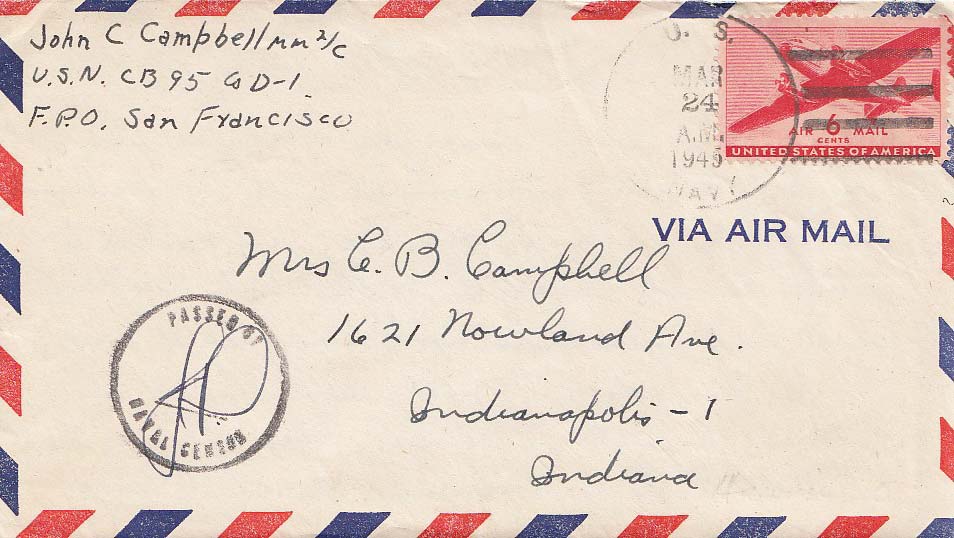 John C Campbell MM 2/C
U.S.N. CB 95 D-1
F.P.O. San Francisco
U. S.
MAR
24
A.M.
1945
NAVY
AIR 6 MAIL
CENTS
UNITED STATES OF AMERICA
VIA AIR MAIL
Mrs C. B. Campbell
1621 Nowland Ave.
Indianapolis - 1
Indiana
PASSED BY
NAVAL CENSOR